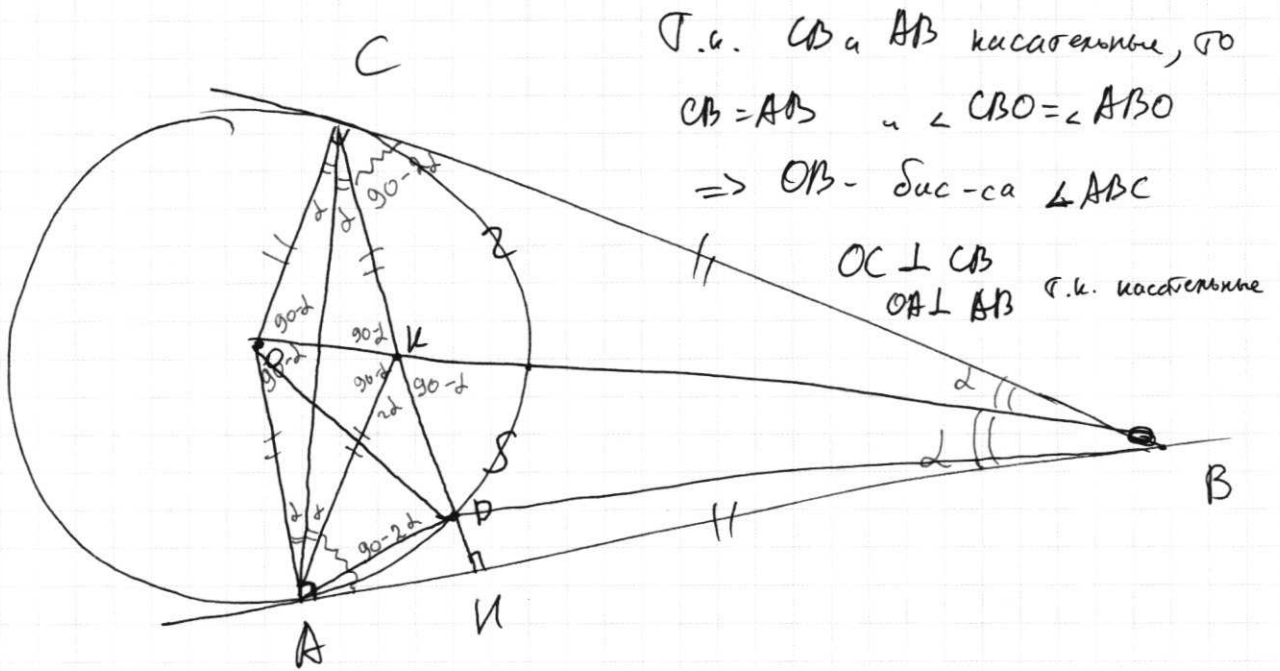 Т.к. CB и AB касательные, то
CB = AB и ∠ CBO = ∠ ABO
=> OB - бис-са ∠ABC
OC ⊥ CB
OA ⊥ AB т.к. касательные
C
90-2α
α α
2
90-α
90-α K
O
90-α
90-α 90-α
2α
α
α
S
B
D
α α
90-2α
И
A